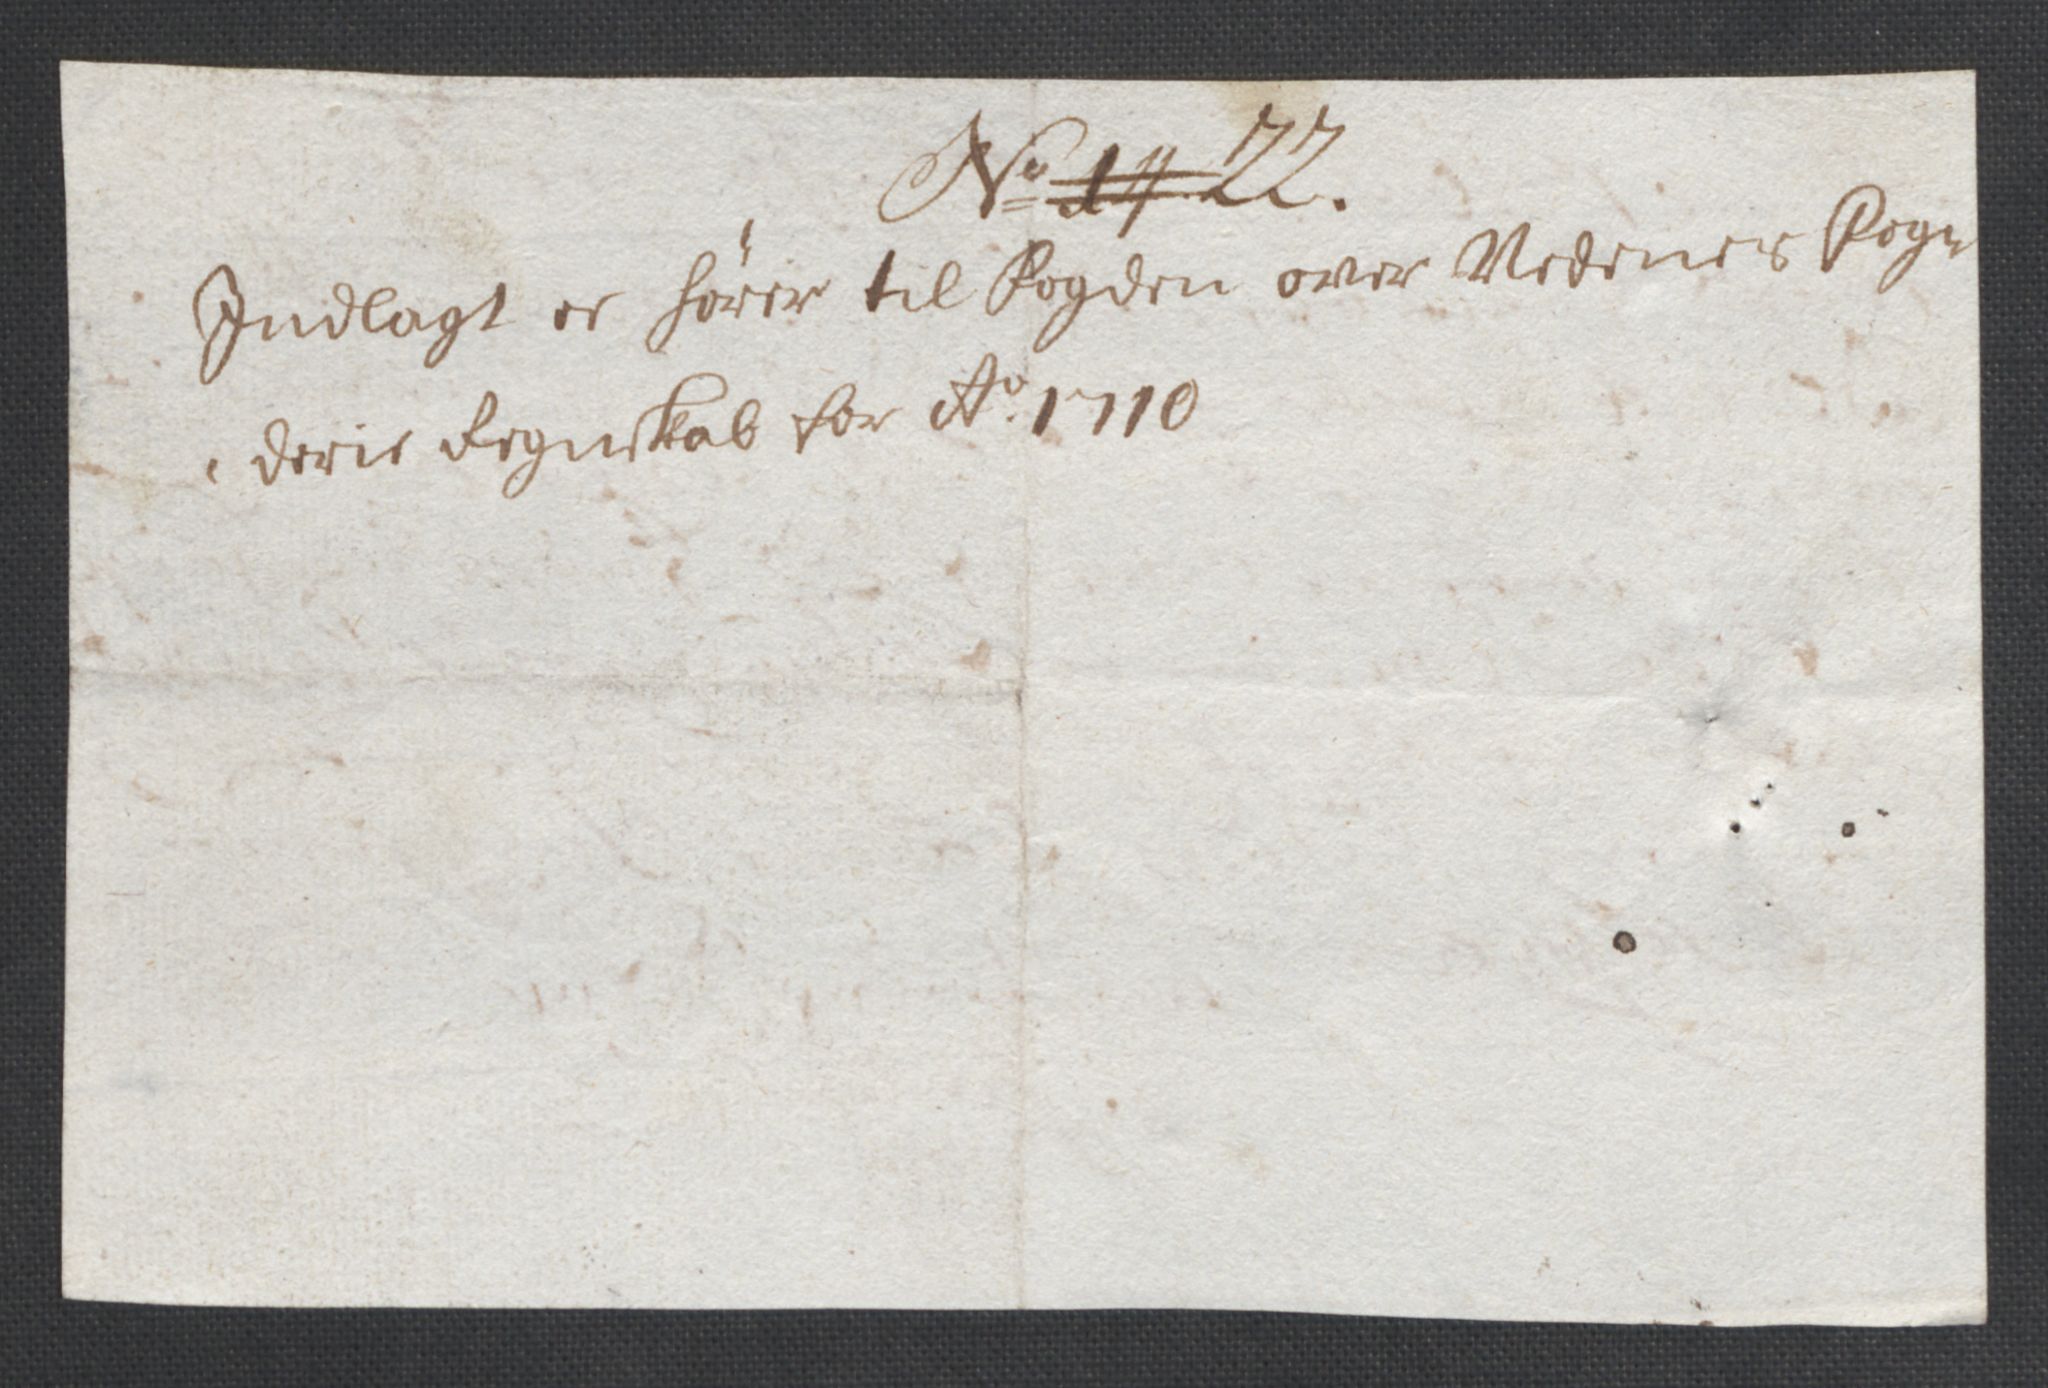 No 14 22.
Indlagt er hörer til Fogden over Nedenes Fog-
derie Regnskab for Ao. 1710